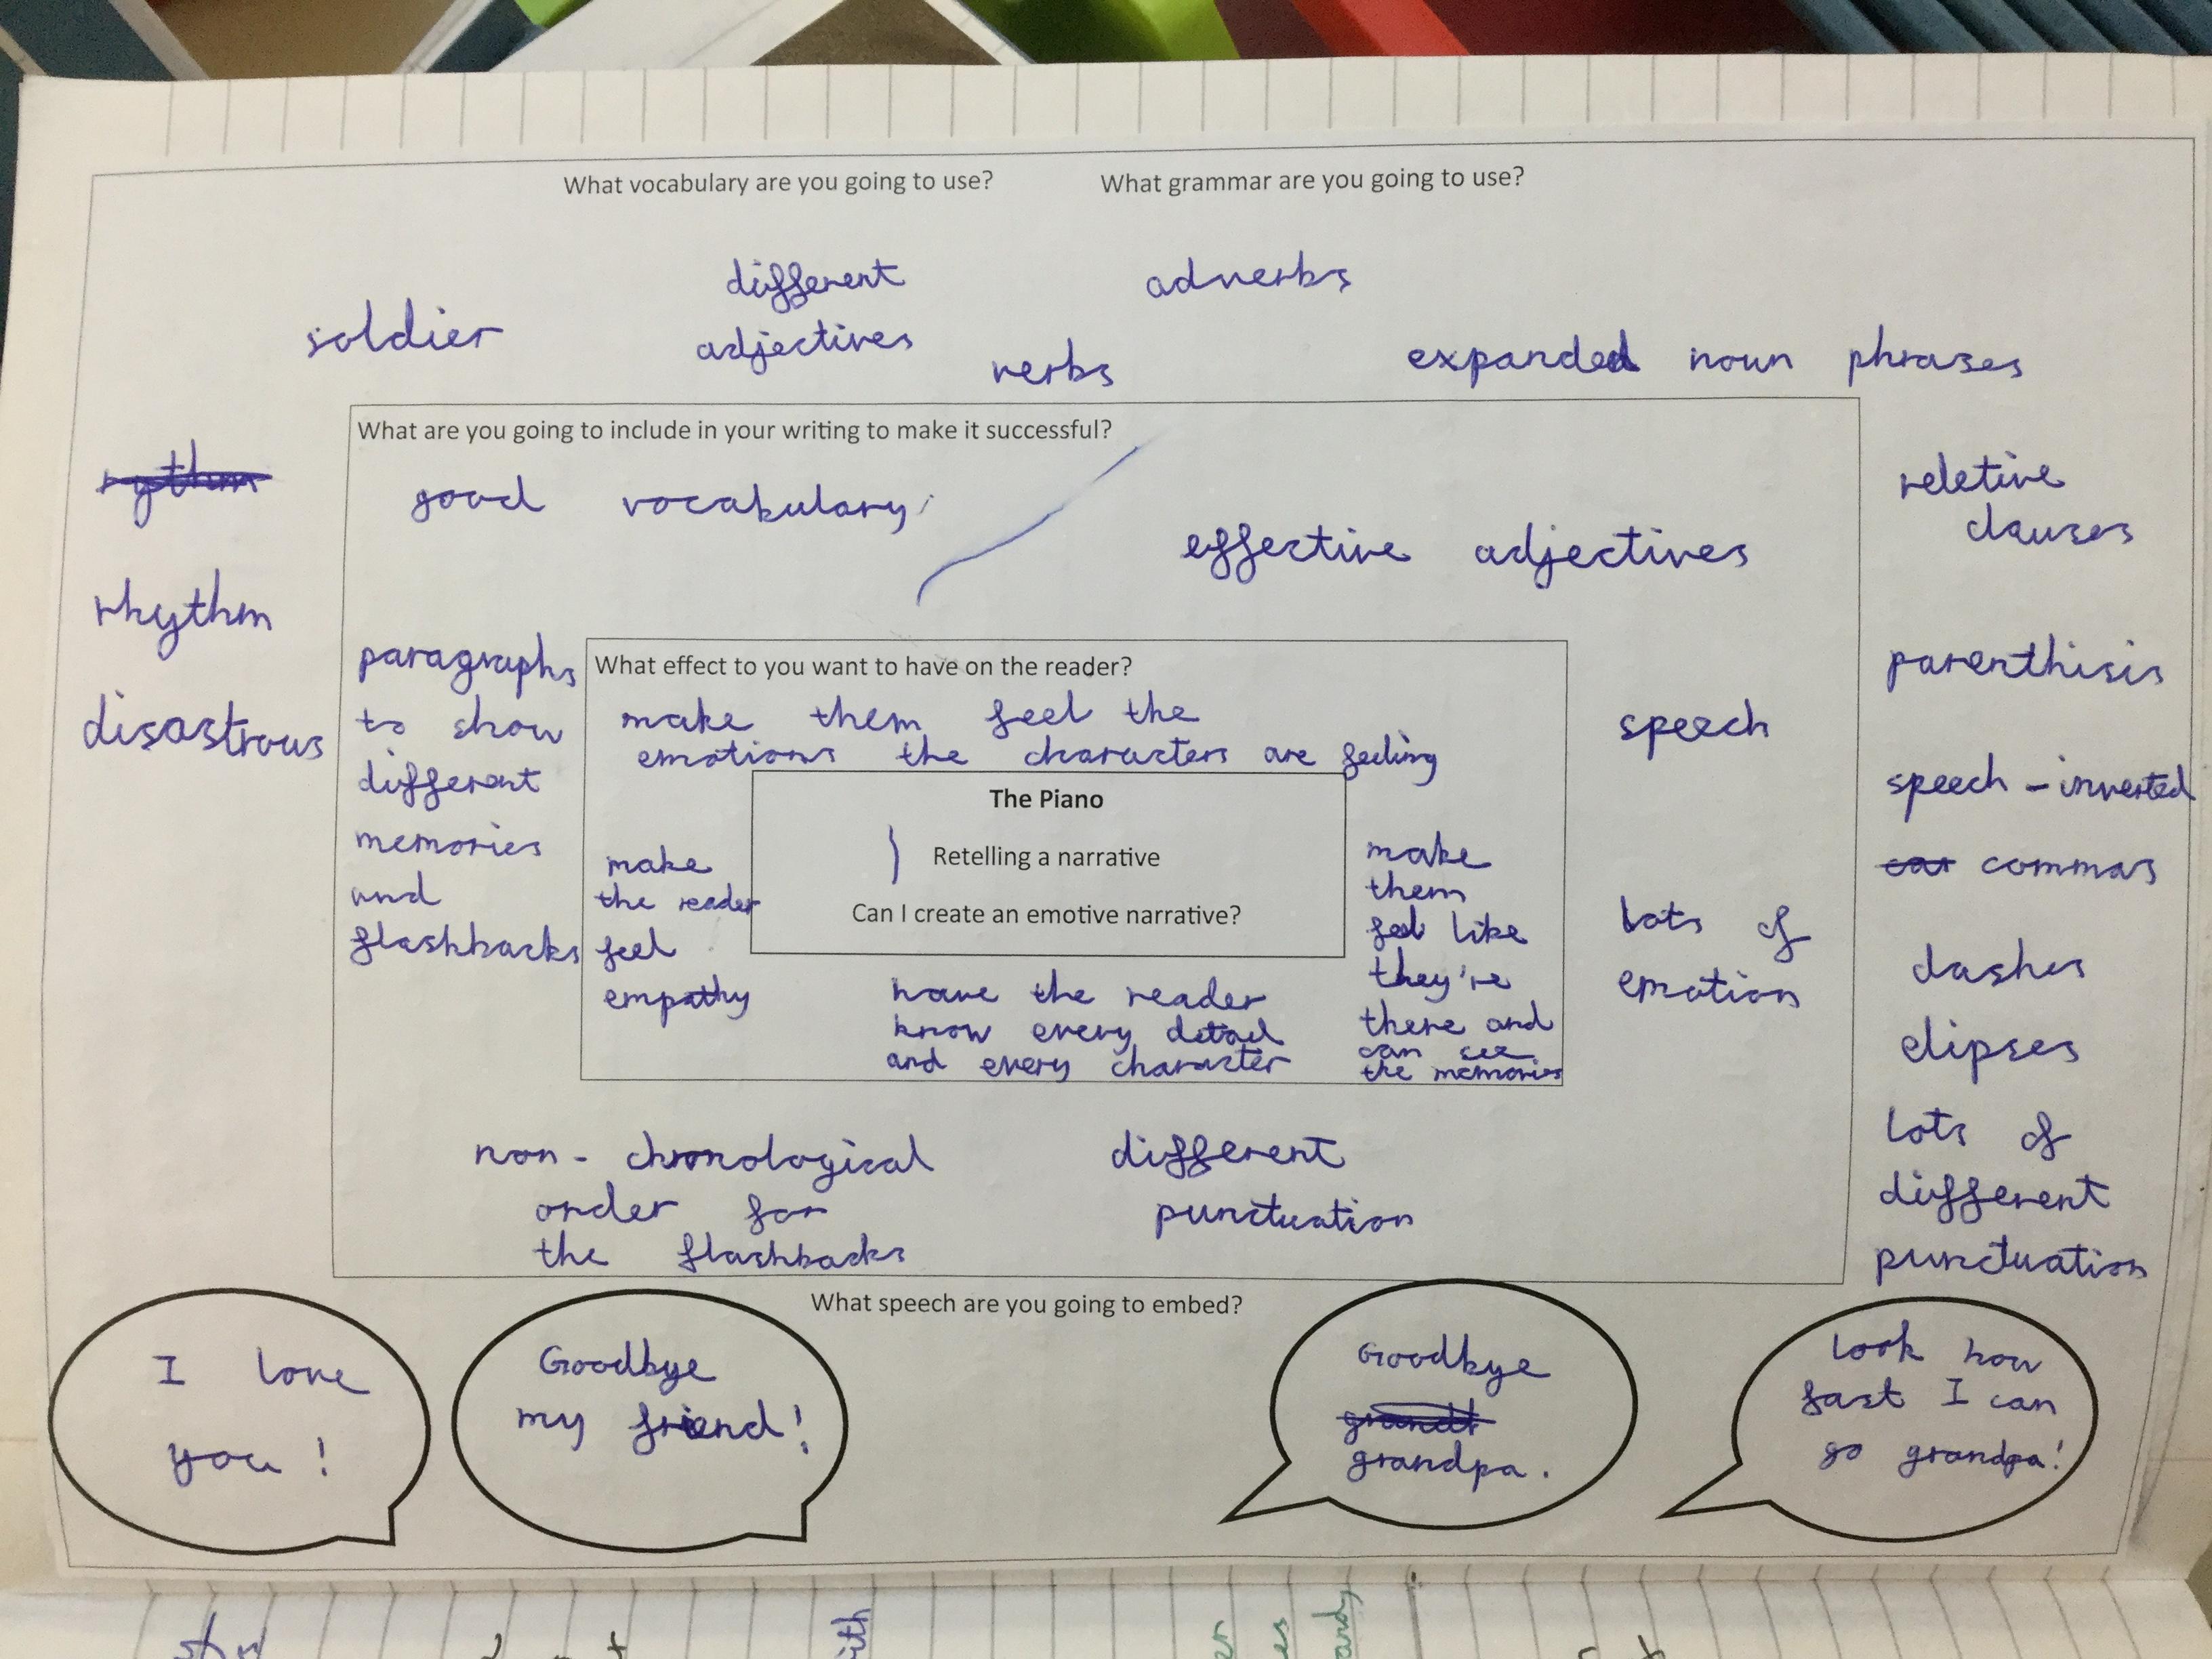 What vocabulary are you going to use?
What grammar are you going to use?
soldier
different
adjectives
verbs
adverbs
expanded noun phrases
rythm
rhythm
disastrous
reletive
clauses
parenthisis
speech - inverted
commas
dashes
elipses
lots of
different
punctuation
What are you going to include in your writing to make it successful?
good vocabulary
effective adjectives
paragraphs
to show
different
memories
and
flashbacks
speech
lots of
emotion
non-chronological
order for
the flashbacks
different
punctuation
What effect to you want to have on the reader?
make them feel the
emotions the characters are feeling
make
the reader
feel
empathy
have the reader
know every detail
and every character
make
them
feel like
they're
there and
can see
the memories
The Piano
Retelling a narrative
Can I create an emotive narrative?
What speech are you going to embed?
I love
you!
Goodbye
my friend!
Goodbye
grandpa.
Look how
fast I can
go grandpa!